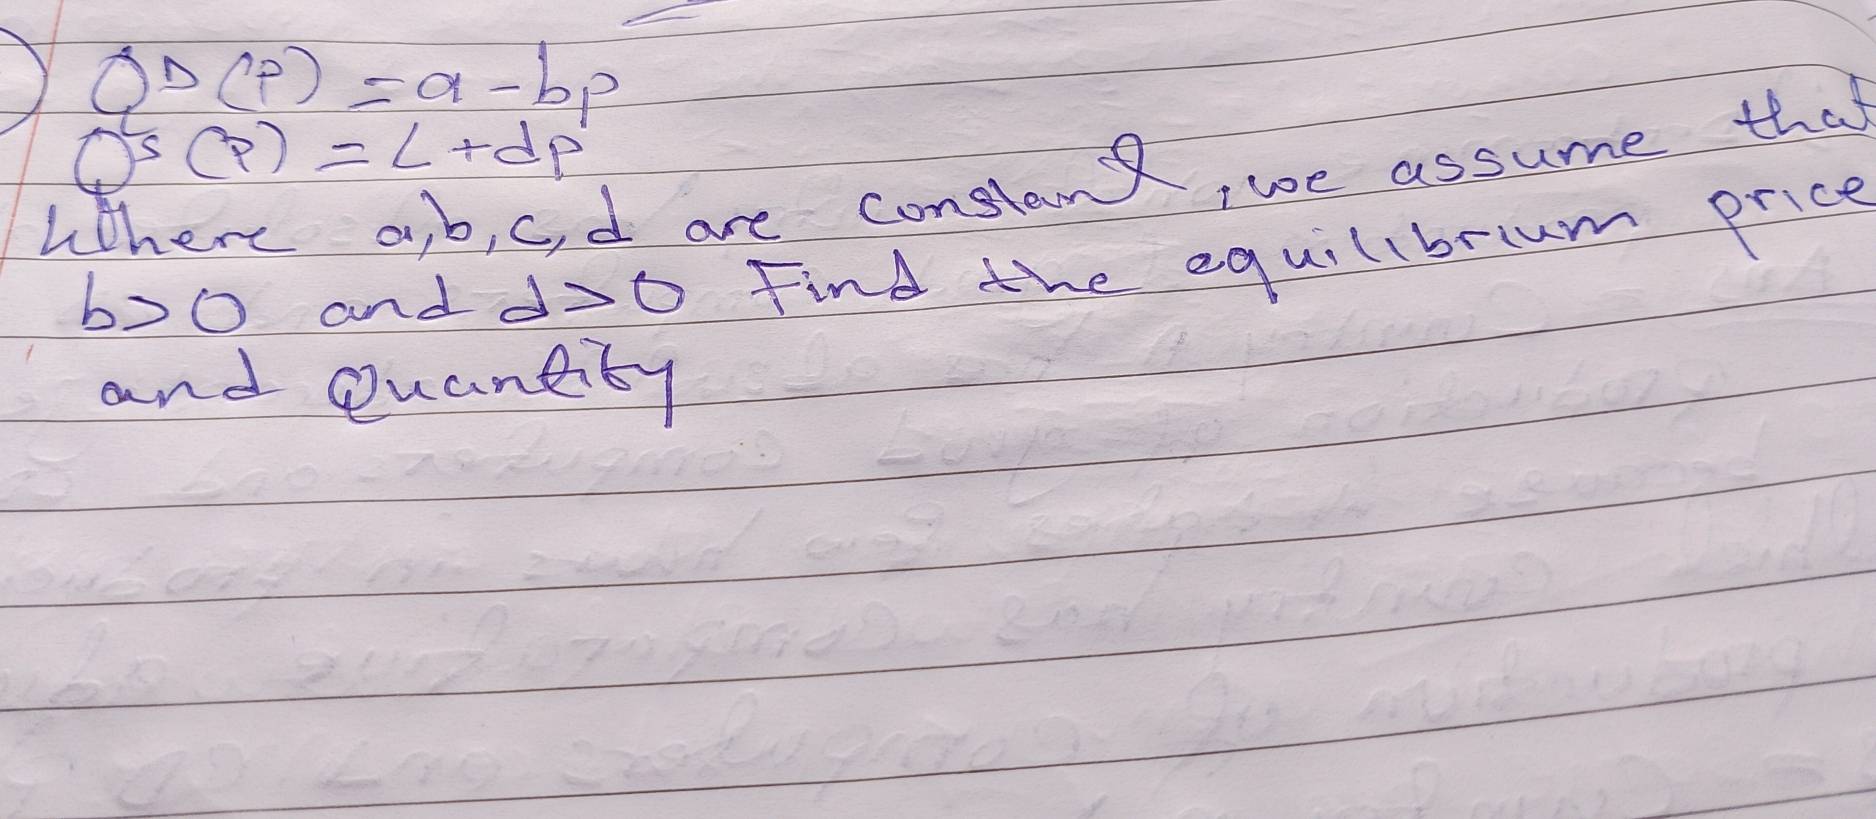 Q^D (P) = a - bp
Q^S (P) = c + dp
Where a, b, c, d are constant, we assume that
b>0 and d>0 Find the equilibrium price
and Quantity